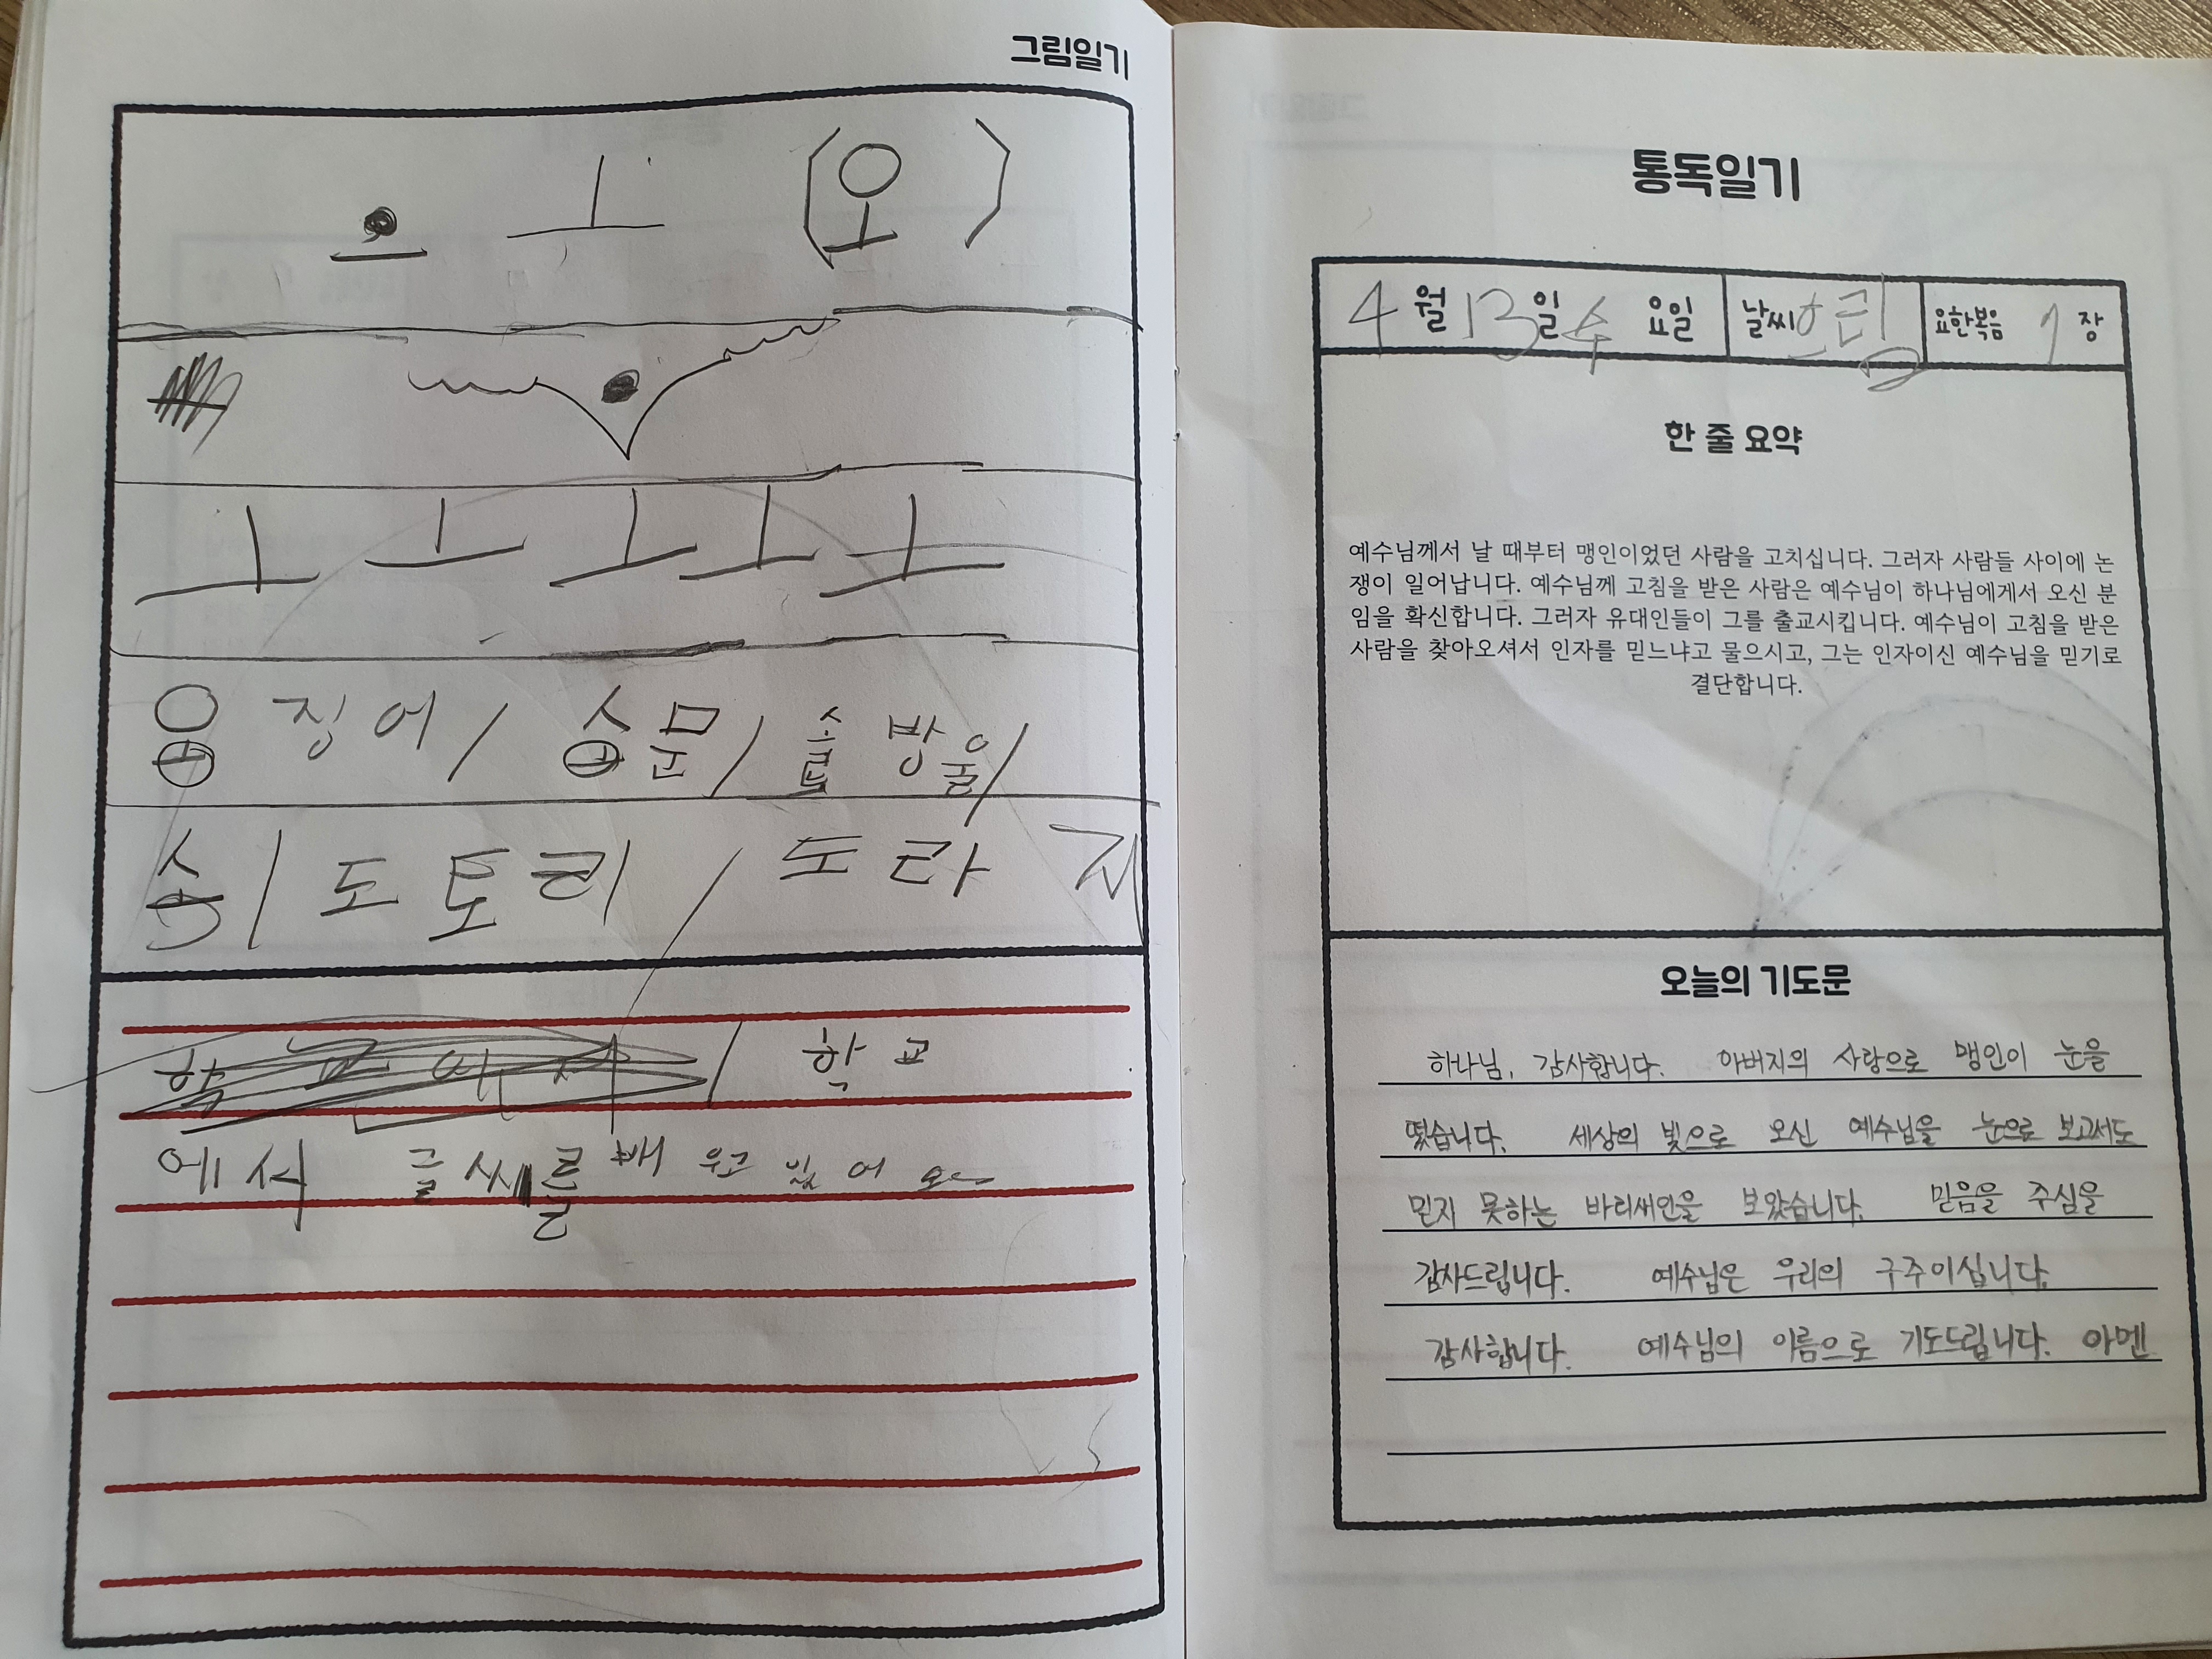 그림일기
ㅗ (오)
ㅗ ㅗ ㅗ ㅗ ㅗ
징어 / 방울 /
손 / 도토리 / 도라지
/ 학교
에서 글씨를 배우고 있어요
통독일기
4월 13일 수요일 날씨 흐림 요한복음 9장
한 줄 요약
예수님께서 날 때부터 맹인이었던 사람을 고치십니다. 그러자 사람들 사이에 논
쟁이 일어납니다. 예수님께 고침을 받은 사람은 예수님이 하나님에게서 오신 분
임을 확신합니다. 그러자 유대인들이 그를 출교시킵니다. 예수님이 고침을 받은
사람을 찾아오셔서 인자를 믿느냐고 물으시고, 그는 인자이신 예수님을 믿기로
결단합니다.
오늘의 기도문
하나님, 감사합니다. 아버지의 사랑으로 맹인이 눈을
떴습니다. 세상의 빛으로 오신 예수님을 눈으로 보고서도
믿지 못하는 바리새인을 보았습니다. 믿음을 주심을
감사드립니다. 예수님은 우리의 구주이십니다.
감사합니다. 예수님의 이름으로 기도드립니다. 아멘